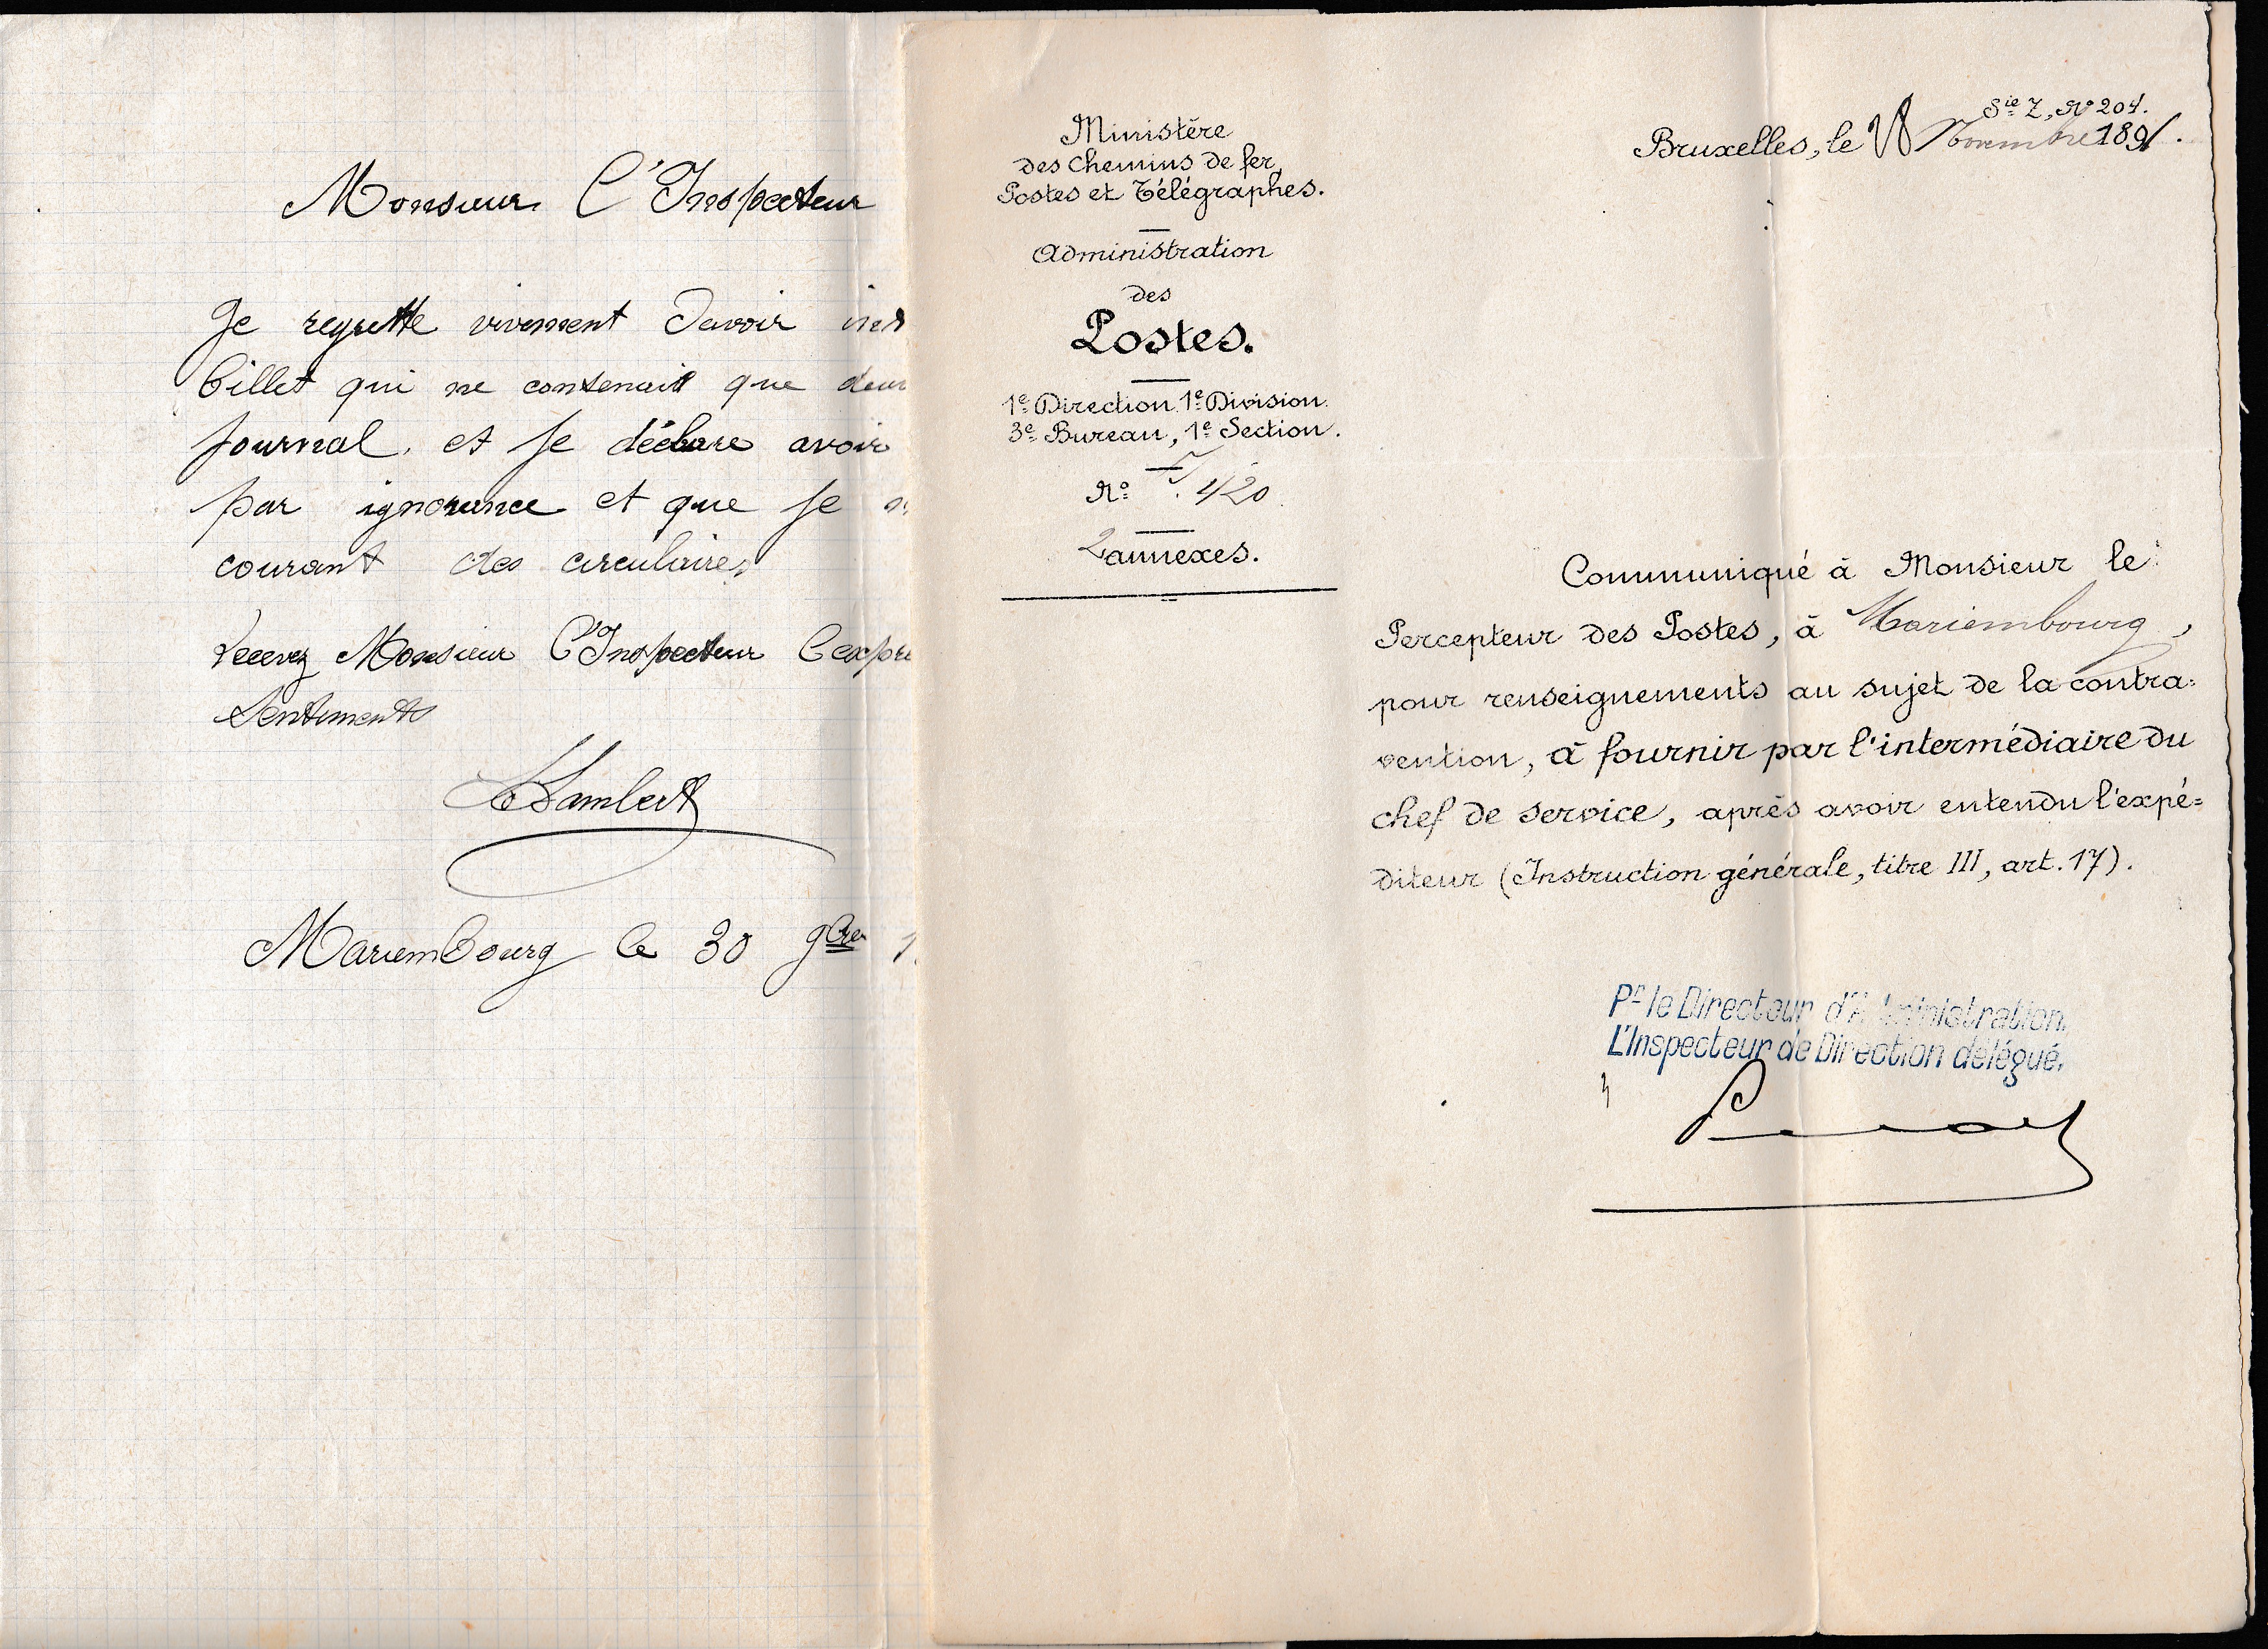 Monsieur L'Inspecteur
Je regrette vivement d'avoir
billet qui ne contenait que
journal. et je déclare avoir
par ignorance et que je
courant des circulaires
Recevez Monsieur L'Inspecteur L'expre
Sentiments
Lambert
Mariembourg le 30 9bre 1
Ministère
des Chemins de fer,
Postes et Télégraphes.
Administration
des
Postes.
1e Direction. 1e Division.
3e Bureau, 1e Section.
No 420
2 annexes.
Sie Z, No 204.
Bruxelles, le 28 Novembre 1891.
Communiqué à Monsieur le
Percepteur des Postes, à Mariembourg,
pour renseignements au sujet de la contra=
vention, à fournir par l'intermédiaire du
chef de service, après avoir entendu l'expé=
diteur (Instruction générale, titre III, art. 17).
Pr le Directeur d'Administration,
L'Inspecteur de Direction délégué,